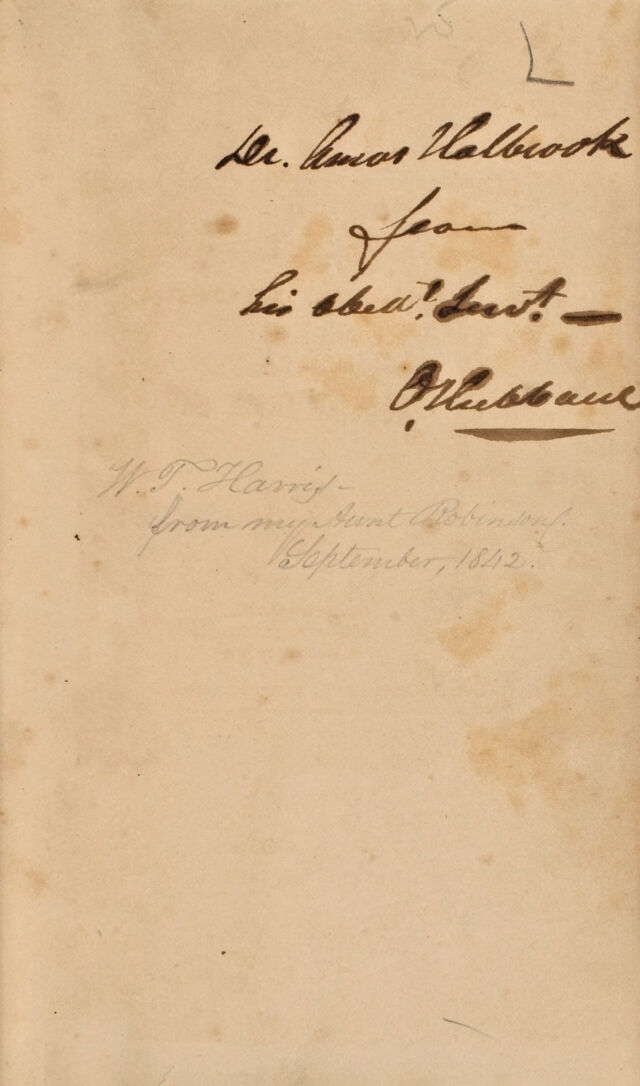 Dr. Amos Holbrook
from
his obedt. Servt. —
O Hubbard
W. T. Harris –
from my Aunt Robinson.
September, 1842.